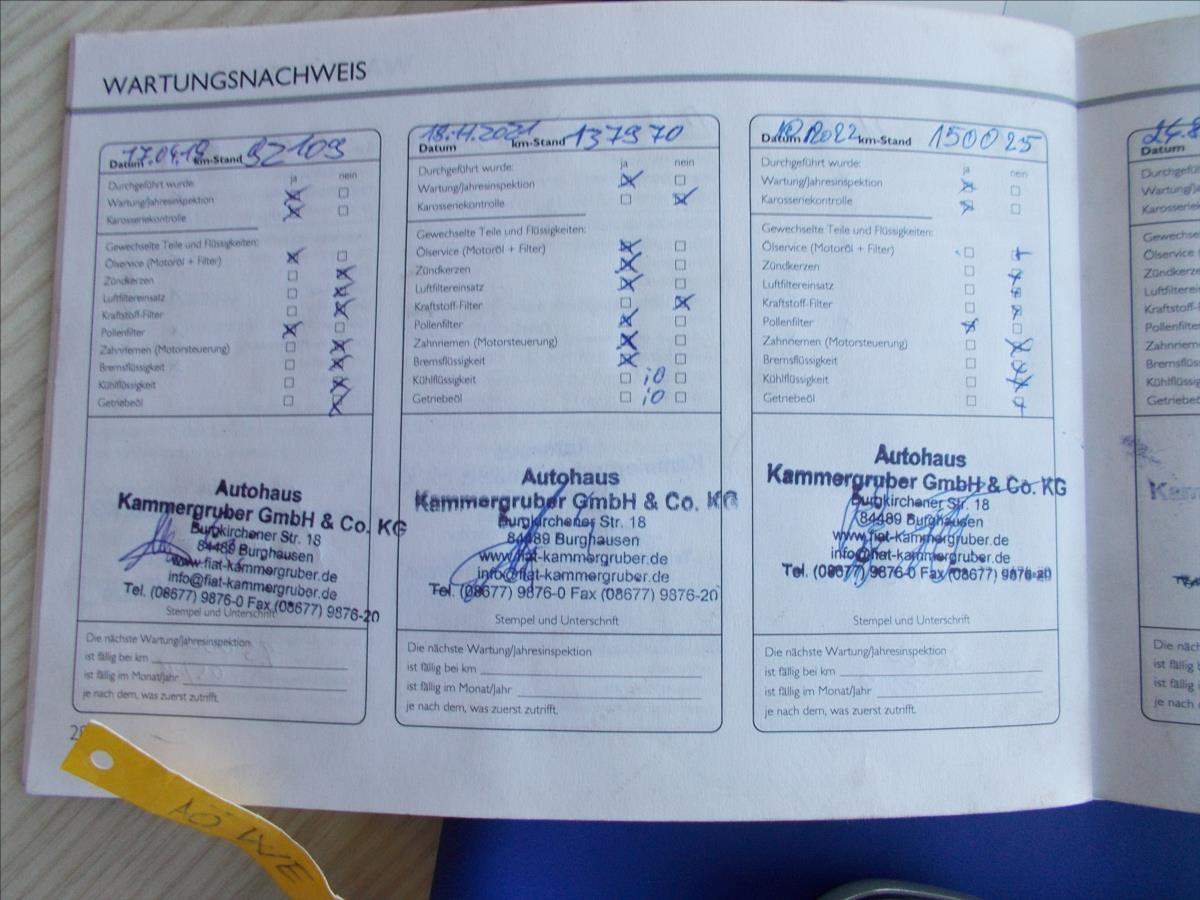 WARTUNGSNACHWEIS
Datum 17.04.19 km-Stand 92109
Durchgeführt wurde: ja nein
Wartung/Jahresinspektion
Karosseriekontrolle
Gewechselte Teile und Flüssigkeiten:
Ölservice (Motoröl + Filter)
Zündkerzen
Luftfiltereinsatz
Kraftstoff-Filter
Pollenfilter
Zahnriemen (Motorsteuerung)
Bremsflüssigkeit
Kühlflüssigkeit
Getriebeöl
Autohaus
Kammergruber GmbH & Co. KG
Burgkirchener Str. 18
84489 Burghausen
www.fiat-kammergruber.de
info@fiat-kammergruber.de
Tel. (08677) 9876-0 Fax (08677) 9876-20
Stempel und Unterschrift
Die nächste Wartung/Jahresinspektion
ist fällig bei km
ist fällig im Monat/Jahr
je nach dem, was zuerst zutrifft.
Datum 18.11.2021 km-Stand 137970
Durchgeführt wurde: ja nein
Wartung/Jahresinspektion
Karosseriekontrolle
Gewechselte Teile und Flüssigkeiten:
Ölservice (Motoröl + Filter)
Zündkerzen
Luftfiltereinsatz
Kraftstoff-Filter
Pollenfilter
Zahnriemen (Motorsteuerung)
Bremsflüssigkeit
Kühlflüssigkeit iO
Getriebeöl iO
Autohaus
Kammergruber GmbH & Co. KG
Burgkirchener Str. 18
84489 Burghausen
www.fiat-kammergruber.de
info@fiat-kammergruber.de
Tel. (08677) 9876-0 Fax (08677) 9876-20
Stempel und Unterschrift
Die nächste Wartung/Jahresinspektion
ist fällig bei km
ist fällig im Monat/Jahr
je nach dem, was zuerst zutrifft.
Datum km-Stand 150025
Durchgeführt wurde: ja nein
Wartung/Jahresinspektion
Karosseriekontrolle
Gewechselte Teile und Flüssigkeiten:
Ölservice (Motoröl + Filter)
Zündkerzen
Luftfiltereinsatz
Kraftstoff-Filter
Pollenfilter
Zahnriemen (Motorsteuerung)
Bremsflüssigkeit
Kühlflüssigkeit
Getriebeöl
Autohaus
Kammergruber GmbH & Co. KG
Burgkirchener Str. 18
84489 Burghausen
www.fiat-kammergruber.de
info@fiat-kammergruber.de
Tel. (08677) 9876-0 Fax (08677) 9876-20
Stempel und Unterschrift
Die nächste Wartung/Jahresinspektion
ist fällig bei km
ist fällig im Monat/Jahr
je nach dem, was zuerst zutrifft.
Datum
Durchgefü
Wartung/Ja
Karosserie
Gewechse
Ölservice
Zündkerz
Luftfilterei
Kraftstof
Pollenfilt
Zahnriem
Bremsflü
Kühlflüss
Getriebe
Kam
Die näch
ist fällig
ist fällig
je nach d
AÖ WE